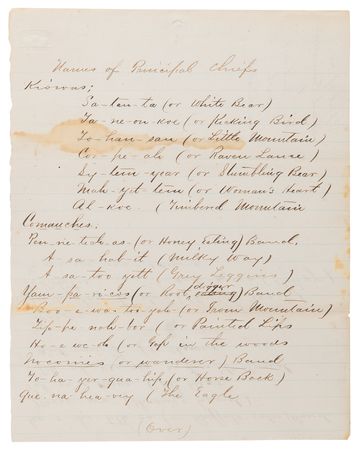 Names of Principal Chiefs
Kiowas;
Sa-ten-ta (or White Bear)
Ta-ne-on koe (or Kicking Bird)
To-han-san (or Little Mountain)
Cor-pe-ah (or Raven Lance)
Sy-tem-year (or Stumbling Bear)
Mah-yet-tem (or Woman's Heart)
Al-koe. (Timbend Mountain
Comanches.
Pen-ne-tah-as-(or Honey Eating) Band.
A sa-hab-it (Milky Way)
A sa-too yett (Grey Leggins)
Yam-pa-ricos (or Root digger Band
Boo-e-was-too-yah (or Iron Mountain)
Tip-pe nah-bor (or Painted Lips
Ho-e we-do (or Gap in the woods
Nocomies (or wanderer) Band
To-ha-yer-qua-hip (or Horse Back)
Que-na-hea-vey (The Eagle
(Over)